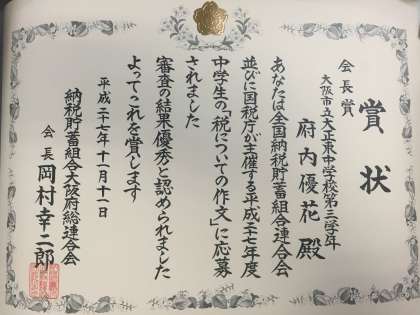 賞状
会長賞
大阪市立大正東中学校第三学年
府内優花殿
あなたは全国納税貯蓄組合連合会
並びに国税庁が主催する平成二十七年度
中学生の「税についての作文」に応募
されました
審査の結果優秀と認められました
よってこれを賞します
平成二十七年十一月十一日
納税貯蓄組合大阪府総連合会
会長 岡村幸二郎